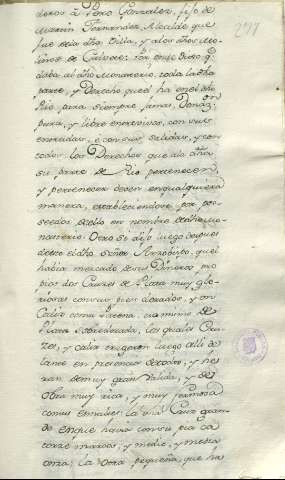 deros à Pero Gonzalez, fijo de
Martin Fernandez, Alcalde que
fue dela dha Villa, y alos dhos Mo
linos de Calveri: Por ende dixo q.
daba al dho Monasterio, toda la dha
parte, y Derecho quel ha en el dho
Rio para siempre jamas, Donaz.ⁿ
pura, y libre entrevivos, con sus
entradas, è con sus salidas, y con
todos los Derechos que ala dicha
su parte de Rio pertenecen,
y pertenecer deven en qualquiera
manera, estableciendose por po-
seedor dello en nombre del dho Mo-
nasterio. Otro si dijo luego despues
desto el dho señor Arzobispo, quel
habia mercado de sus Dineros pro
pios dos Cruces de Plata muy glo-
riosas con sus pies dorados, y un
Caliz con su Patena, eso mismo de
Plata sobredorada, las quales Cru-
zes, y caliz trageron luego alli de
lante en presencia de todos, y he
ran de muy gran valida, y de
obra muy rica, y muy fermosa
con sus esmaltes: la una Cruz gran-
de en que havia con su pie ca
torze marcos, y medio, y media
onza: la otra pequeña, que ha